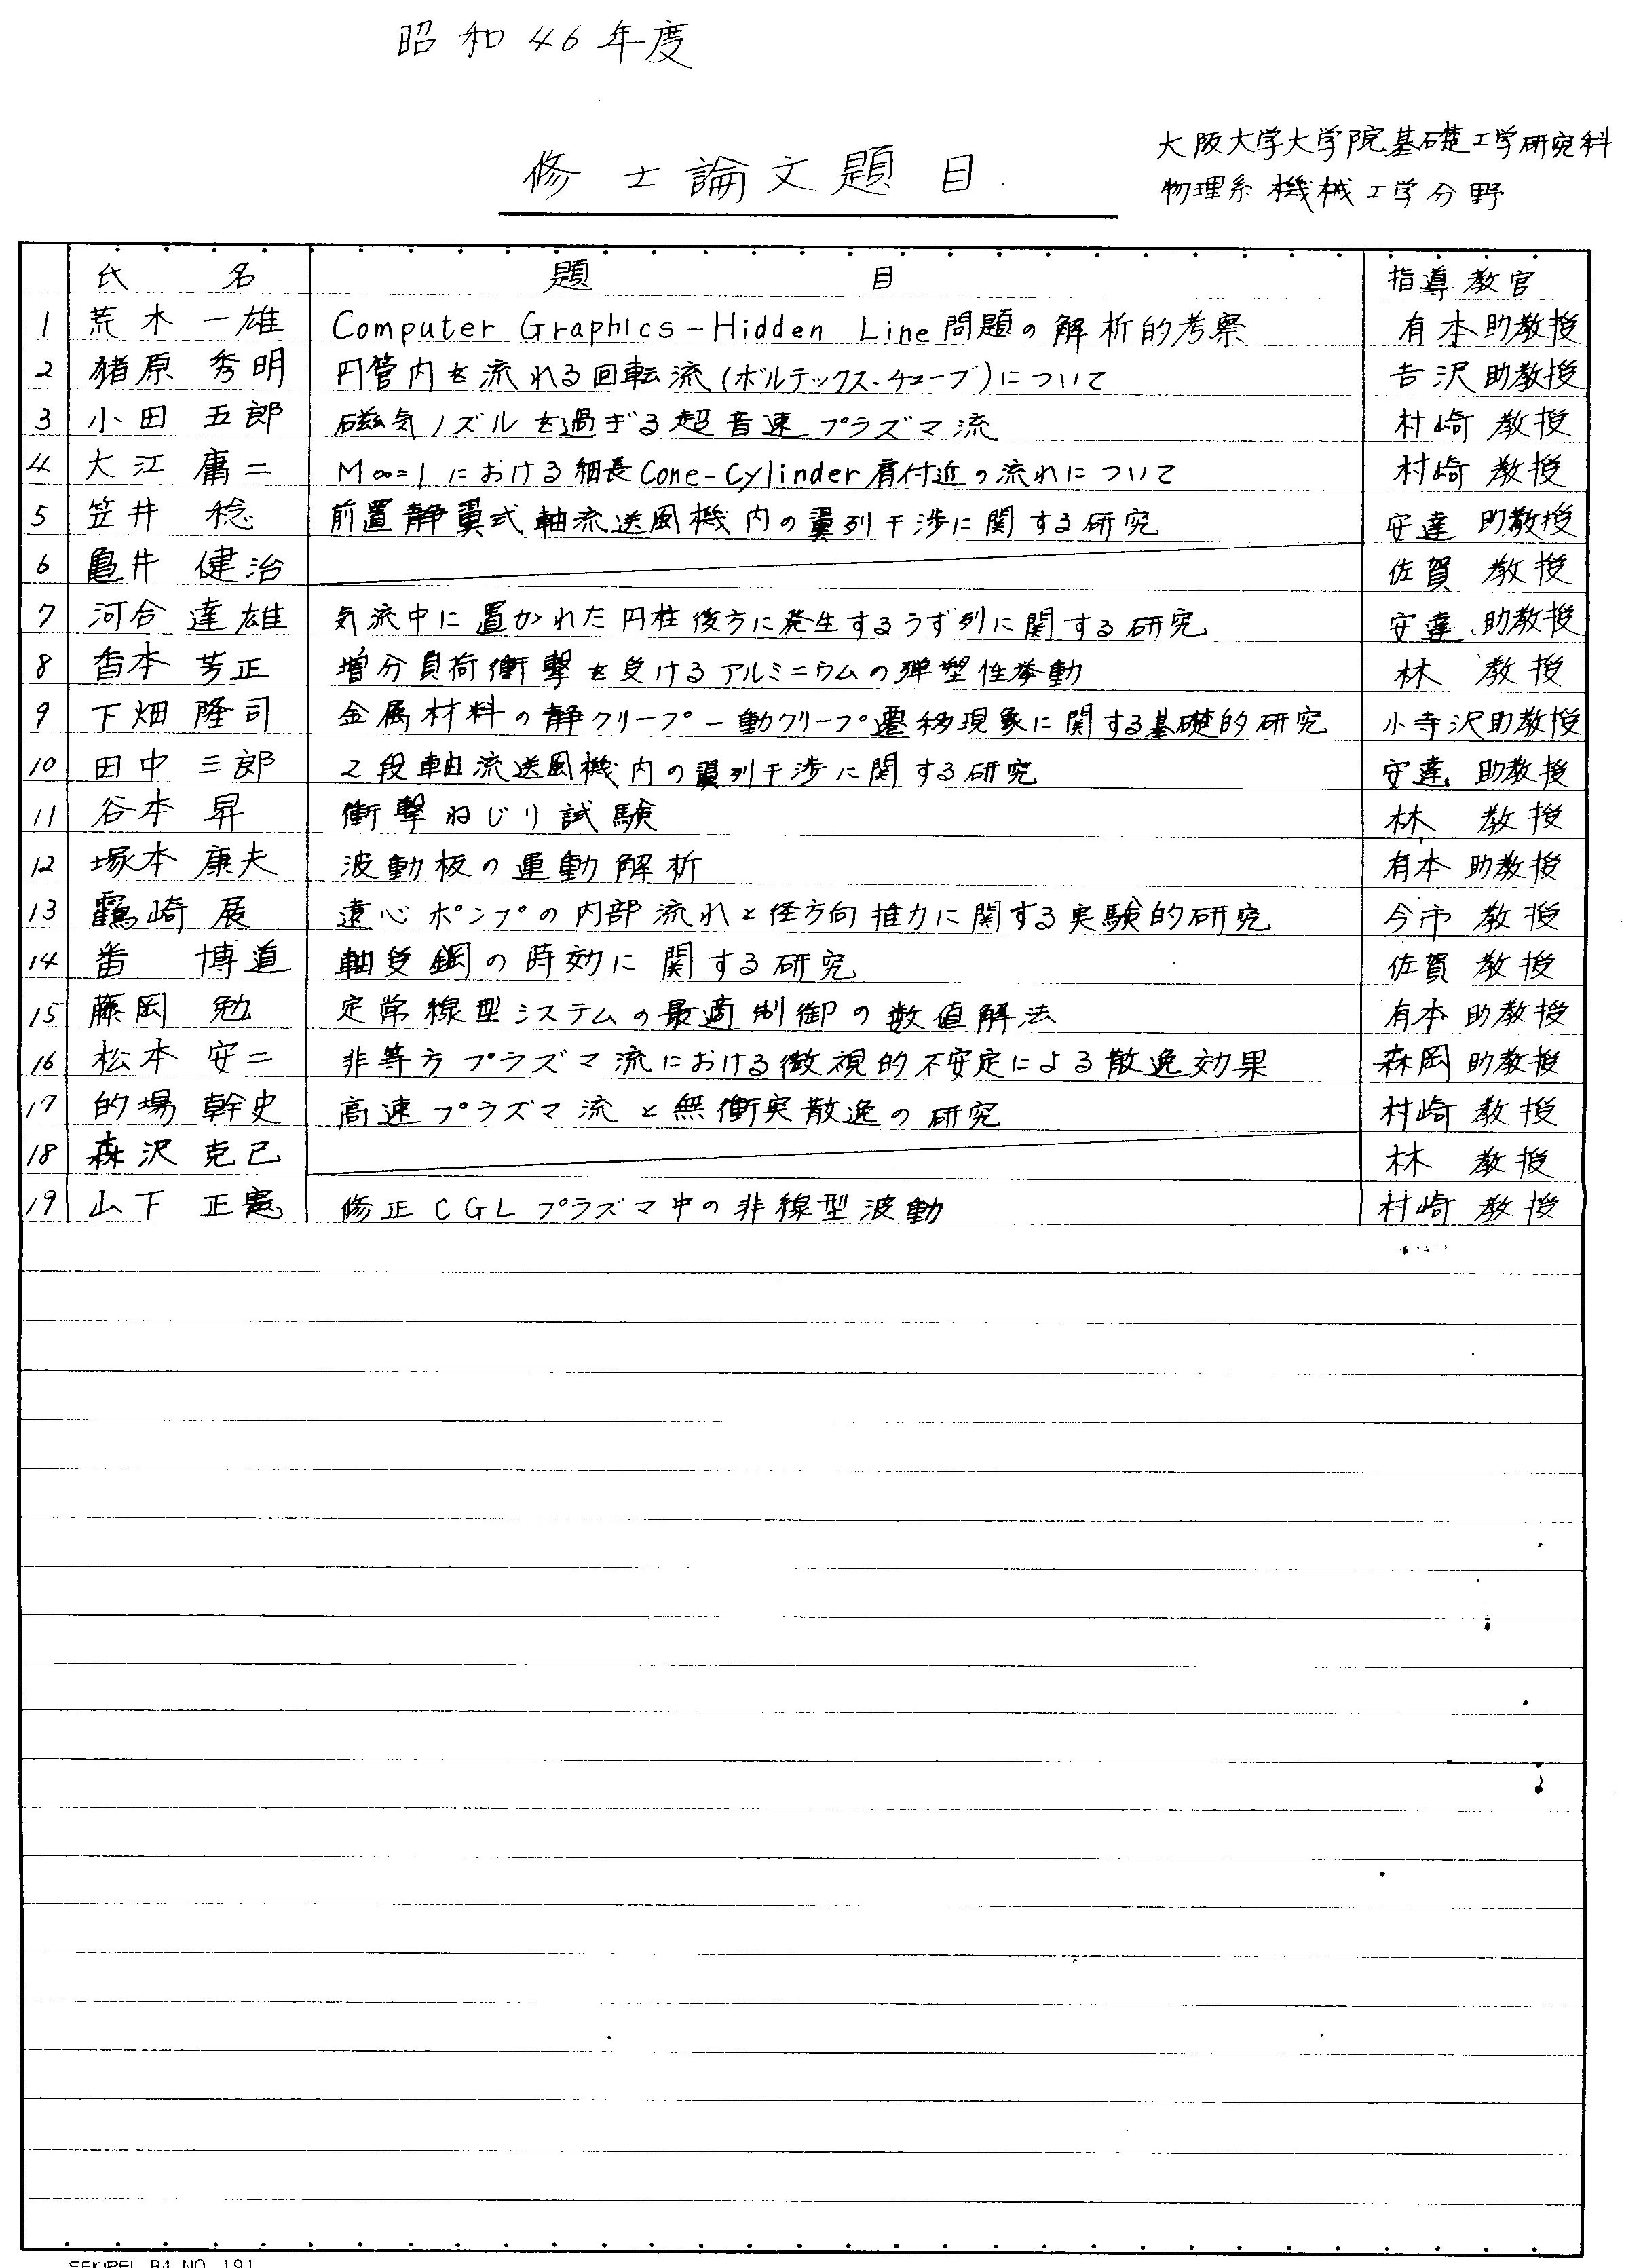 昭和46年度
修士論文題目
大阪大学大学院基礎工学研究科
物理系機械工学分野
氏名 題目 指導教官
1 荒木一雄 Computer Graphics-Hidden Line問題の解析的考察 有本助教授
2 猪原秀明 円管内を流れる回転流(ボルテックス・チューブ)について 吉沢助教授
3 小田五郎 磁気ノズルを過ぎる超音速プラズマ流 村崎教授
4 大江庸二 M∞=1における細長Cone-Cylinder肩付近の流れについて 村崎教授
5 笠井稔 前置静翼式軸流送風機内の翼列干渉に関する研究 安達助教授
6 亀井健治 佐賀教授
7 河合達雄 気流中に置かれた円柱後方に発生するうず列に関する研究 安達助教授
8 香本芳正 増分負荷衝撃を受けるアルミニウムの弾塑性挙動 林教授
9 下畑隆司 金属材料の静クリープー動クリープ遷移現象に関する基礎的研究 小寺沢助教授
10 田中三郎 2段軸流送風機内の翼列干渉に関する研究 安達助教授
11 谷本昇 衝撃ねじり試験 林教授
12 塚本康夫 波動板の運動解析 有本助教授
13 鶴崎展 遠心ポンプの内部流れと径方向推力に関する実験的研究 今市教授
14 番博道 軸受鋼の時効に関する研究 佐賀教授
15 藤岡勉 定常線型システムの最適制御の数値解法 有本助教授
16 松本安二 非等方プラズマ流における微視的不安定による散逸効果 森岡助教授
17 的場幹史 高速プラズマ流と無衝突散逸の研究 村崎教授
18 森沢克己 林教授
19 山下正憲 修正CGLプラズマ中の非線型波動 村崎教授
SEKIREI B4 NO. 191